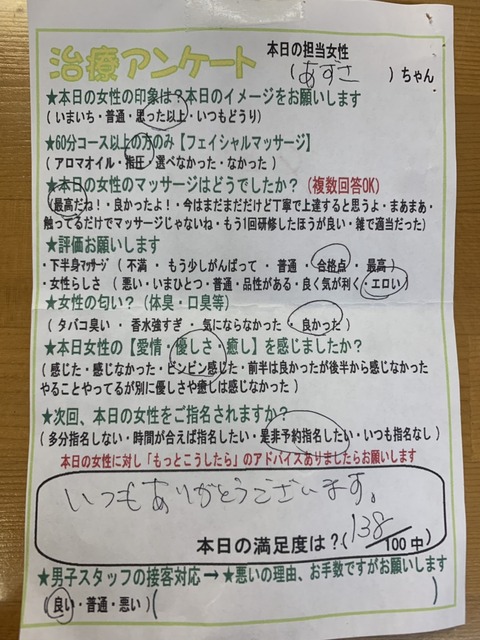 治療アンケート
本日の担当女性
(あずさ)ちゃん
★本日の女性の印象は?本日のイメージをお願いします
(いまいち・普通・思った以上・いつもどうり)
★60分コース以上の方のみ【フェイシャルマッサージ】
(アロマオイル・指圧・選べなかった・なかった)
★本日の女性のマッサージはどうでしたか?(複数回答OK)
(最高だね!・良かったよ!・今はまだまだだけど丁寧で上達すると思うよ・まあまあ・
触ってるだけでマッサージじゃないね・もう1回研修したほうが良い・雑で適当だった)
★評価お願いします
・下半身マッサージ(不満・もう少しがんばって・普通・合格点・最高)
・女性らしさ(悪い・いまひとつ・普通・品性がある・良く気が利く・エロい)
★女性の匂い?(体臭・口臭等)
(タバコ臭い・香水強すぎ・気にならなかった・良かった)
★本日女性の【愛情・優しさ・癒し】を感じましたか?
(感じた・感じなかった・ビンビン感じた・前半は良かったが後半から感じなかった
やることやってるが別に優しさや癒しは感じなかった)
★次回、本日の女性をご指名されますか?
(多分指名しない・時間が合えば指名したい・是非予約指名したい・いつも指名なし)
本日の女性に対し「もっとこうしたら」のアドバイスありましたらお願いします
いつもありがとうございます。
本日の満足度は?(138/100中)
★男子スタッフの接客対応→★悪いの理由、お手数ですがお願いします
(良い・普通・悪い)( )